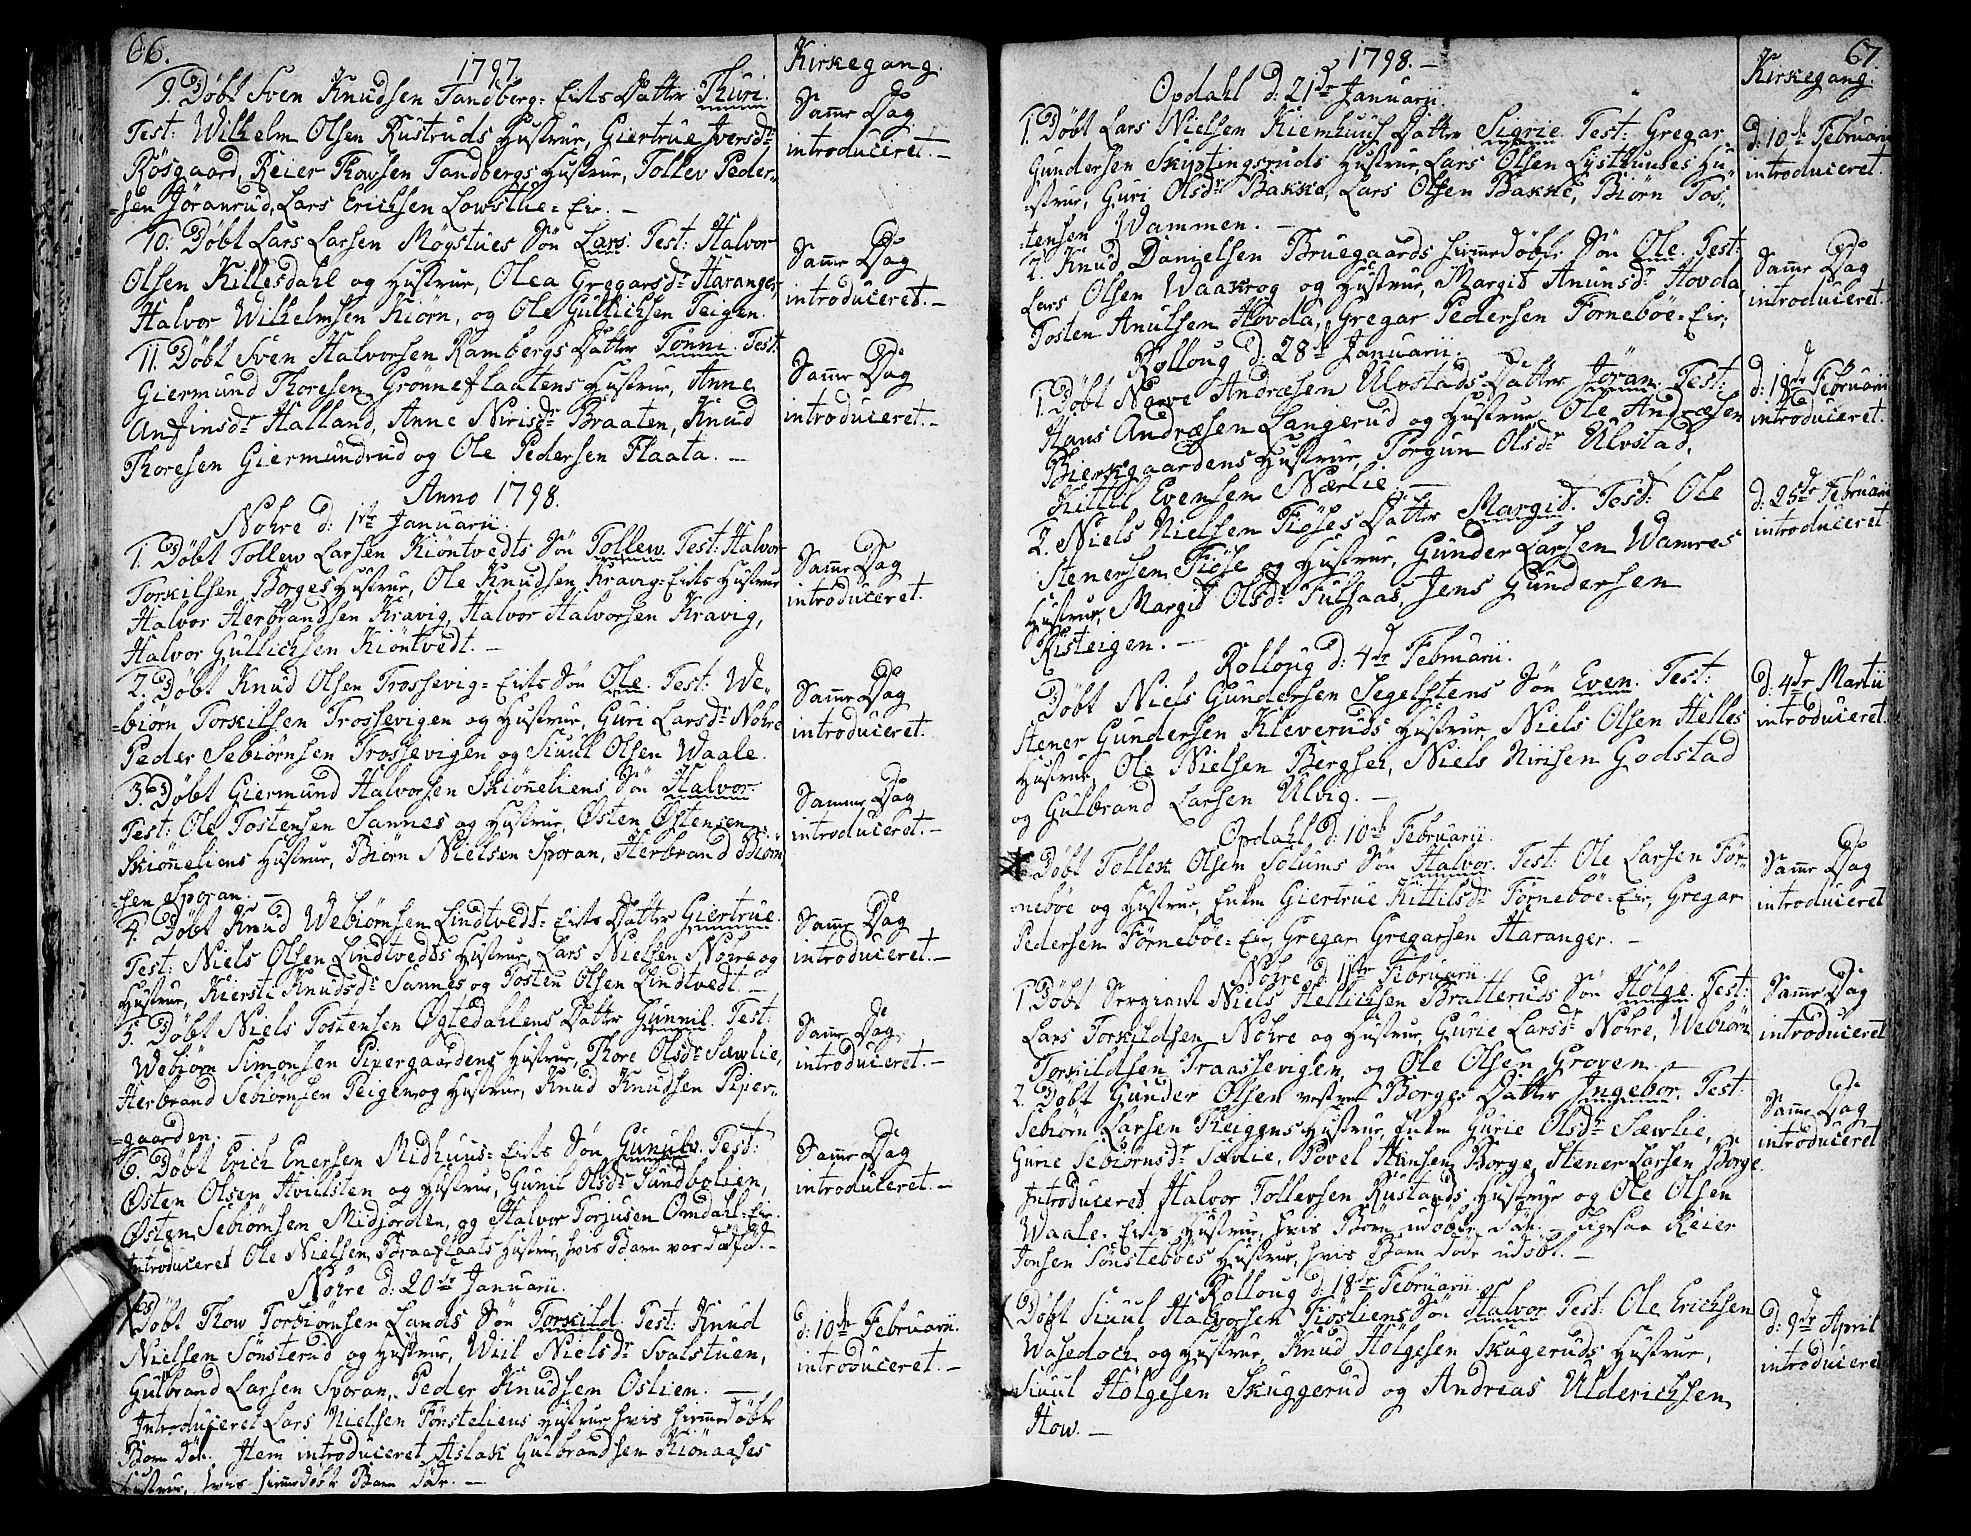 66.
1797
Kirkegang.
9. Døbt Sven Knudsen Tandberg-Eiets Datter Thuri.
Test: Wilhelm Olsen Rustruds Hustrue, Giertrue Iversdr
Rösgaard, Reier Thowsen Tandbergs Hustrue, Tollev Peder-
-sen Jöranrud, Lars Erichsen Lowslie-Eie. -
Same Dag
introduceret. -
10. Døbt Lars Larsen Mögstues Sön Lars. Test: Halvor
Olsen Killesdahl og Hustrue, Olea Gregarsdr Haranger,
Halvor Wilhelmsen Kiörn, og Ole Gullichsen Teigen.
Same Dag
introduceret. -
11. Døbt Sven Halvorsen Rambergs Datter Tönne. Test:
Giermund Thoresen Grönneflaatens Hustrue, Anne
Anfinsdr Halland, Anne Nirisdr Braaten, Knud
Thoresen Giermundrud og Ole Pedersen Flaata. -
Same Dag
introduceret. -
Anno 1798.
Nohre d: 1ste Januarii.
1. Døbt Tollew Larsen Kiöntvedts Sön Tollew. Test: Halvor
Torkilsen Borges Hustrue, Ole Knudsen Kravig-Eiets Hustrue
Halvor Herbrandsen Kravig, Halvor Halvorsen Kravig,
Halvor Gullichsen Kiöntvedt. -
Same Dag
introduceret.
2. Døbt Knud Olsen Trossevig-Eiets Sön Ole. Test: We-
-biörn Torkilsen Trossevigen og Hustrue, Guri Larsdr Nohre
Peder Sebiörnsen Trossevigen og Siuul Olsen Waale.
Same Dag
introduceret.
3. Døbt Giermund Halvorsen Skiöneliens Sön Halvor.
Test: Ole Tostensen Sannes og Hustrue, Østen Østensen
Skiöneliens Hustrue, Biörn Nielsen Sporan, Herbrand Biörn-
sen Sporan. -
Samme Dag
introduceret. -
4. Døbt Knud Webiörnsen Lindtvedt-Eiets Datter Giertrue.
Test: Niels Olsen Lindtvedts Hustrue, Lars Nielsen Nohre og
Hustrue, Kiersti Knudsdr Sannes og Tosten Olsen Lindtvedt. -
Same Dag
introduceret. -
5. Døbt Niels Tostensen Øgtedahlens Datter Gunnil. Test:
Webiörn Simonsen Pipergaardens Hustrue, Thore Olsdr Sæwlie,
Herbrand Sebiörnsen Teigen og Hustrue, Knud Knudsen Piper-
-gaarden. -
Same Dag
introduceret. -
6. Døbt Erich Enersen Midhuus-Eiets Sön Gunulv. Test:
Østen Olsen Hvillsten og Hustrue, Gunil Olsdr Sundbölien,
Østen Sebiörnsen Midjorden, og Halvor Torjusen Omdahl-Eie.
Introduceret Ole Nielsen Braaflaats Hustrue, hvis Barn var dödföd. -
Same Dag
introduceret. -
Nohre d: 20de Januarii.
Døbt Thow Torbiörnsen Lands Sön Torkild. Test: Knud
Nielsen Sönsterud og Hustrue, Wiil Nielsdr Svalstuen,
Gulbrand Larsen Sporan, Peder Knudsen Oslien. -
d: 10de Februarii.
introduceret. -
Introduceret Lars Nielsen Fönsteliens Hustrue, hvis hiemmedöbte
Barn döde. Item introduceret Aslak Gulbrandsen Kiönaases
Hustrue, hvis hiemedöbt Barn döde. -
67.
1798. -
Kirkegang.
Opdahl d: 21de Januarii.
1. Døbt Lars Nielsen Hiemhuus Datter Sigrie. Test: Gregar
Gundersen Skiptingsruds Hustrue, Lars Olsen Lysthuuses Hu-
-strue, Guri Olsdr Bakke, Lars Olsen Bakke, Biörn Tos-
-tensen Wammen. -
d: 10de Februarii
introduceret.
2. Knud Danielsen Bruegaards hiemedöbte Sön Ole. Test:
Lars Olsen Waakrog og Hustrue, Margit Anunsdr Hovda
Tosten Anulsen Hovda, Gregar Pedersen Förneböe-Eie,
Same Dag
introduceret. -
Rolloug d: 28de Januarii.
1. Døbt Narve Andræsen Ulvstads Datter Jöran. Test:
Hans Andræsen Langerud og Hustrue, Ole Andræsen
Bierkgaardens Hustrue, Torgun Olsdr Ulvstad,
Kittil Evensen Nærlie. -
d: 18de Februarii
introduceret.
2. Niels Nielsen Fiöses Datter Margid. Test: Ole
Stenersen Fiöse og Hustrue, Gunder Larsen Wamres
Hustrue, Margit Olsdr Fulsaas, Jens Gundersen
Risteigen. -
d: 25de Februarii
introduceret.
Rolloug d: 4de Februarii.
Døbt Niels Gundersen Segelstens Sön Even. Test:
Stener Gundersen Kleveruds Hustrue, Niels Olsen Helles
Hustrue, Ole Nielsen Bergset, Niels Nirisen Godstad
og Gulbrand Larsen Ulvig. -
d: 4de Martii
introduceret.
Opdahl d: 10de Februarii.
Døbt Tollex Olsen Solums Sön Halvor. Test: Ole Larsen För-
-neböe og Hustrue, Enken Giertrue Kittilsdr Förneböe-Eie, Gregar
Pedersen Förneböe-Eie, Gregar Gregarsen Haranger. -
Same Dag
introduceret
Nohre d: 11te Februarii.
1. Døbt Sergiant Niels Hellichsen Bratteruds Sön Hölge. Test:
Lars Torkildsen Nohre og Hustrue, Gurie Larsdr Nohre, Webiörn
Torkildsen Traassevigen, og Ole Olsen Groven. -
Same Dag
introduceret
2. Døbt Gunder Olsen vestre Borges Datter Ingebor. Test:
Sebiörn Larsen Teigens Hustrue, Enken Gurie Olsdr Sæwlie,
Gurie Sebiörnsdr Sævlie, Povel Hansen Borge, Stener Larsen Borge.
Same Dag
introduceret
Introduceret Halvor Tollevsen Rustands Hustrue og Ole Olsen
Waale-Eiets Hustrue, hvis Börn udöbte döde. - Ligesaa Reier
Jonsen Sönsteböes Hustrue, hvis Barn döde udöbt. -
Rolloug d: 18de Februarii.
Døbt Siuul Halvorsen Fiösliens Sön Halvor. Test: Ole Erichsen
Wasedoch og Hustrue, Knud Hölgesen Skugeruds Hustrue,
Siuul Hölgesen Skuggerud og Andreas Ulderichsen
How. -
d: 9de April
introduceret